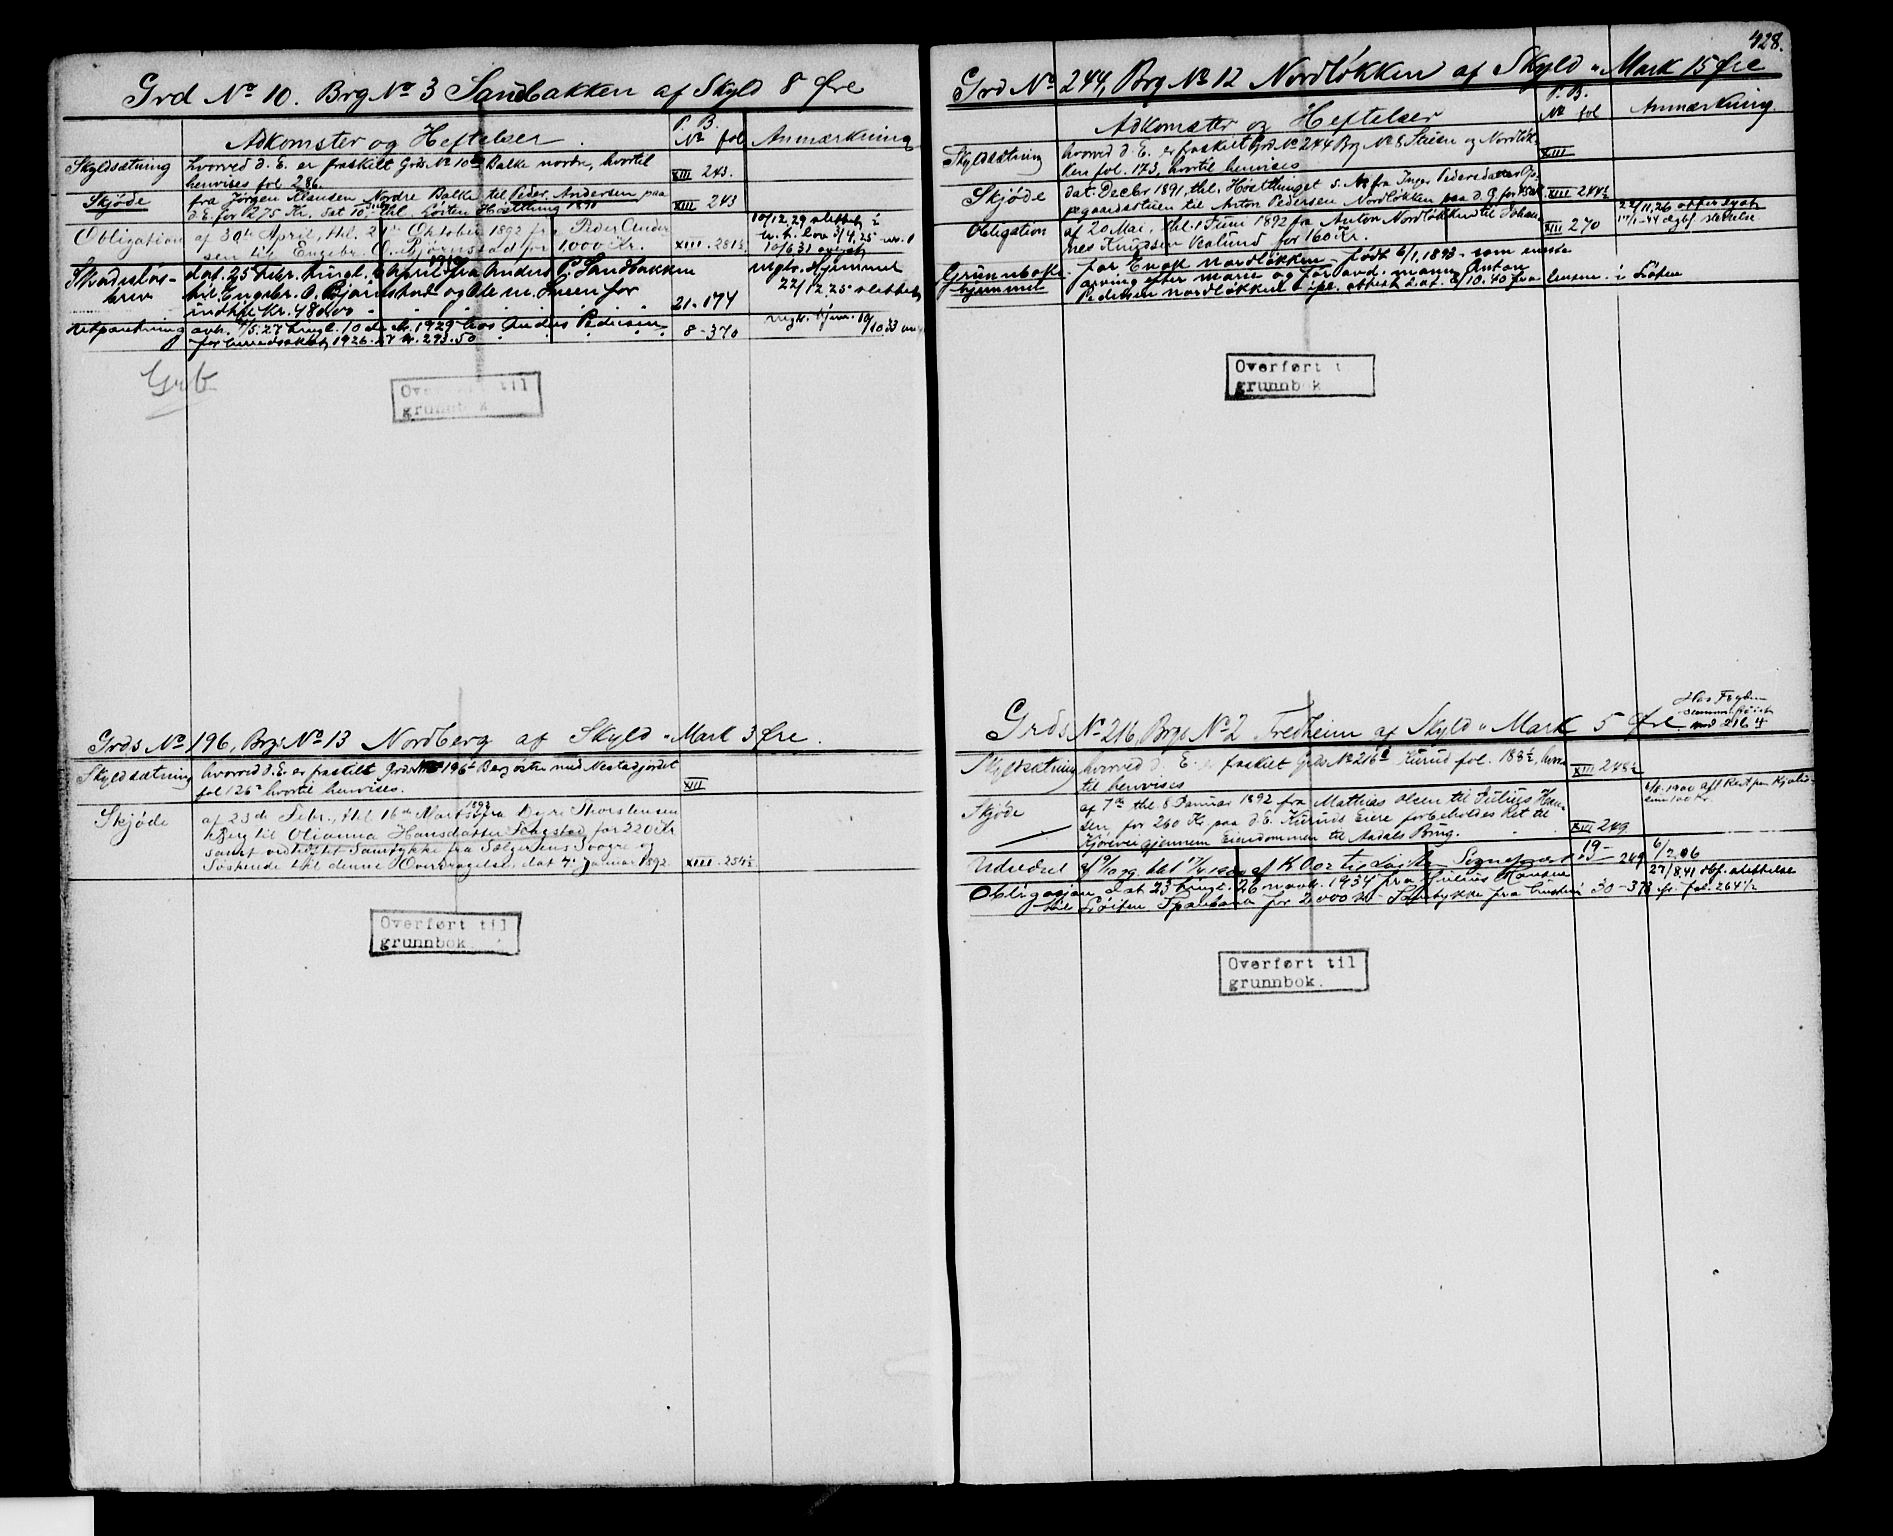 Grd No 10. Brg No 3 Sandbakken af Skyld 8 Øre
Adkomster og Heftelser
P. B.
No fol
Anmærkning
Skyldsætning
hvorved d. E. er fraskilt Grds. No 10 Balke nordre, hvortil
henvises fol. 286.
XIII 243.
Skjøde
fra Jørgen Klausen Nordre Balke til Peder Andersen paa
d. E. for 1275 Kr. dat 10 thl. Løiten Høstthing 1891
XIII 243
Obligation
af 30te April, thl. 2 Oktober 1892 fra Peder Ander
sen til Engebr. O. Bjørnstad for 1000 Kr.
XIII. 281½
10/12.29 slettet i
h. t. lov 3/4.25 nr. 1
10/6 31 avlyst
Skadesløs-
brev
dat. 25 Febr. tingl. April 1910 fra Anders P. Sandbakken
til Engebr. O. Bjørnstad og Ole M. for
indtil Kr. 480.00
21. 174
mgler. Hjemmel
22/12.25 slettet
Utpantning
avh. /5.27 tingl. 10 1929 hos Anders Pedersen
for 1926-27 kr. 293.50
8-370
mgler. hjem. 10
/10 33
Grb
Overført til
grunnbok
Grds No 196, Brgs No 13 Nordberg af Skyld " Mark 3 Øre.
Skyldsætning
hvorved d. E. er fraskilt Grds. No 196 Berg østre med Nestadjordet
fol 126 hvortil henvises.
XIII
Skjøde
af 23de Febr., thl 16de Marts 1892 fra Dyre Thorstensen
Berg til Olianna Hansdatter Tokstad for 220 Kr
samt vedheftet Samtykke fra Sælgerens Svogre og
Søskende til denne Overdragelse, dat 7. Januar 1892.
XIII. 254½
Overført til
grunnbok
428.
Grd No 244, Brg No 12 Nordløkken af Skyld " Mark 15 Øre
Adkomster og Heftelser
P. B.
No fol
Anmærkning.
Skyldsætning
hvorved d. E. er fraskilt Grd. No 244 Brg No 8 Stuen og Nordløk-
ken fol. 173, hvortil henvises
XIII
Skjøde
dat. Decbr 1891, thl. Høstthinget s. A. fra Inger Pedersdatter Op-
pegaardsstuen til Anton Pedersen Nordløkken paa d. E. for
XIII 244½
Obligation
af 20 Mai, thl. 1 Juni 1892 fra Anton Nordløkken til Johan-
nes Knudsen Vealund for 160 Kr.
XIII 270
22/11.26 etterlyst
-44 slettelse
Grunnboks-
hjemmel
for Enok Nordløkken - født 6/1.1893 - som eneste
arving efter Marie og forh. avd. mann Anton
Pedersen Nordløkken i fl. attest dat. 8/10.40 fra lensm. i Løten
Overført t
grunnbok
Grds No 216, Brgs No 2 Fredheim af Skyld " Mark 5 Øre
med 216 4
Skyldsætning
hvorved d. E. er fraskilt Grds No 216 Kurud fol. 183½, hvor-
til henvises
XIII 248½
Skjøde
af 7de thl 8 Januar 1892 fra Matthias Olsen til Julius Han-
sen for 260 Kr paa d. E. Kuruds Eiere forbeholdes Ret til
Kjørevei gjennem Eiendommen til Aadals Brug.
XIII 249
1900 afl Restpr. Kjøbs-
sum 100 Kr.
Udvedel
19-
249
6/2.06
Obligasjon
dat. 23 tingl. 26 novbr. 1934 fra Julius Hansen
til Løiten Sparebank for 2000 kr - Samtykke fra hustru
30-373
27/8.41 obl. slettelse
fr. fol. 264½
Overført til
grunnbok.